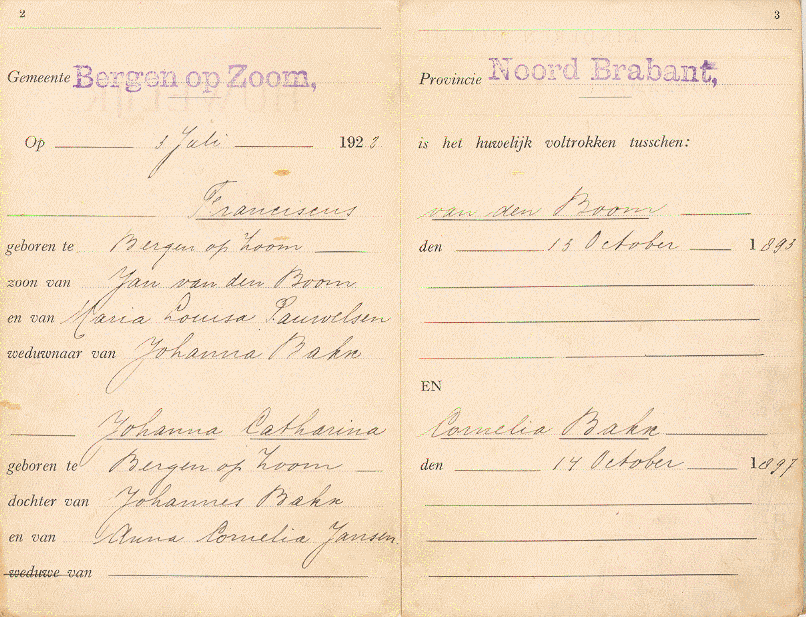 2
Gemeente Bergen op Zoom,
Op 3 Juli 1923
Franciscus
geboren te Bergen op Zoom
zoon van Jan van den Boom
en van Maria Louisa Pauwelsen
weduwnaar van Johanna Bakx
Johanna Catharina
geboren te Bergen op Zoom
dochter van Johannes Bakx
en van Anna Cornelia Jansen
weduwe van
3
Provincie Noord Brabant,
is het huwelijk voltrokken tusschen:
van den Boom
den 15 October 1893
EN
Cornelia Bakx
den 14 October 1897